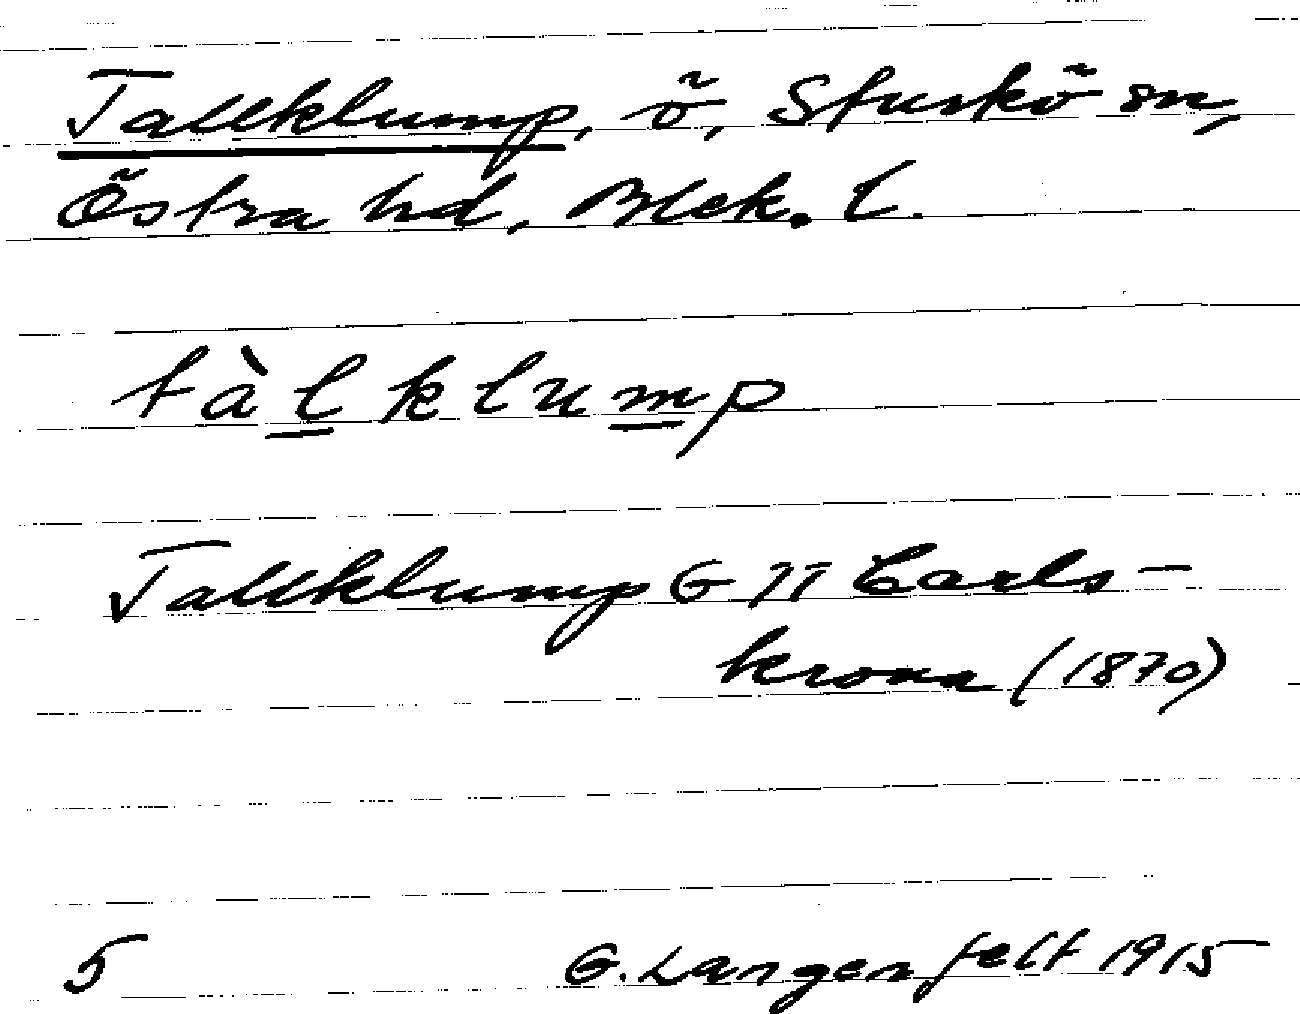 Tallklump, ö, Sturkö sn,
Östra hd, Blek. l.
tàlklump
Tallklump G 77 Carls-
krona (1870)
5 G. Langenfelt 1915